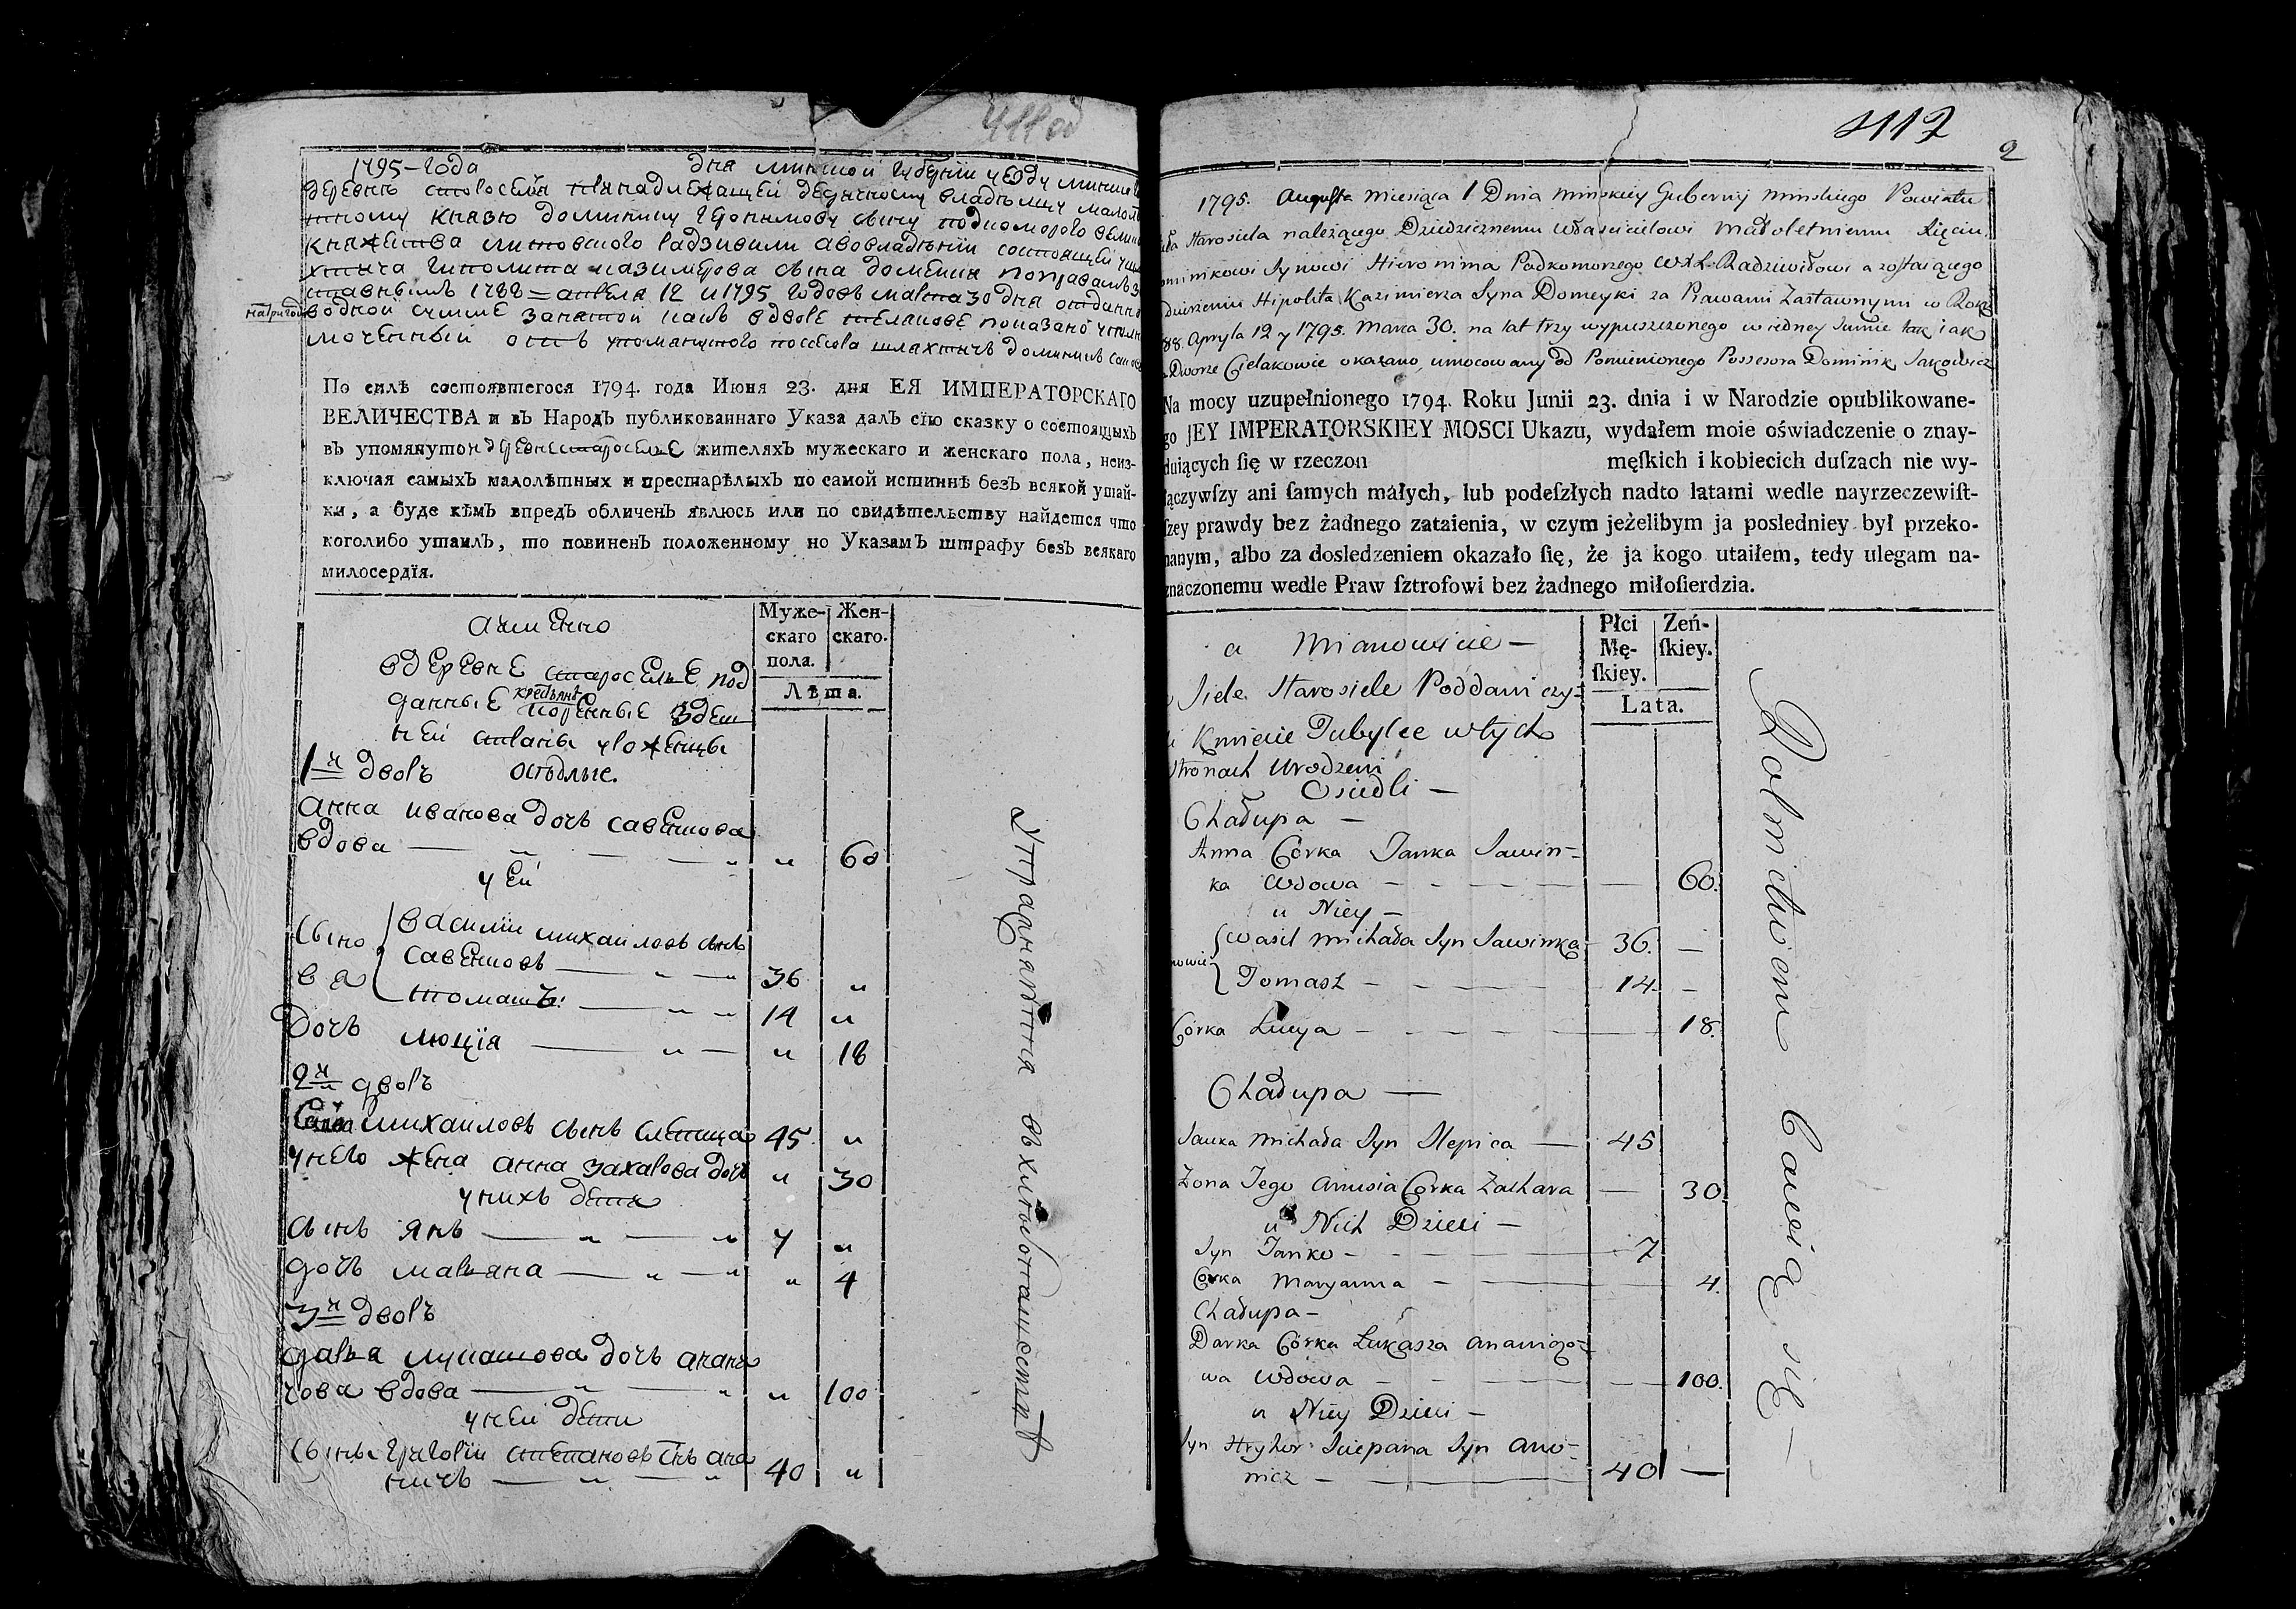 411 об
1795 – года дня минской губернїи уезду минска
деревнѣ староселя принадлежащей дедычному владѣлцу малолѣ
тному князю доминику иеронимову сыну подкоморого великого
княжества литовского радзивилу а во владѣнїи состоящей
иполита казимерова сына домейки по правамъ за
ставнымъ 1788 = апреля 12 и 1795 годовъ марта 30 дня отданно
на три годы водной сумме занятой какъ в дворе телякове показано уполно
моченный отъ упомянутого посесора шляхтичъ доминикъ сакович
По силѣ состоявшегося 1794. года Июня 23. дня ЕЯ ИМПЕРАТОРСКАГО
ВЕЛИЧЕСТВА и въ Народъ публикованнаго Указа далъ сїю сказку о состоящыхъ
въ упомянутой деревне старосельѣ жителяхъ мужескаго и женскаго пола, неиз-
ключая самыхъ малолѣтныхъ и престарѣлыхъ по самой истиннѣ безъ всякой утай-
ки, а буде кѣмъ впредъ обличенъ явлюсь или по свидѣтельству найдется что
коголибо утаилъ, то повиненъ положенному по Указамъ штрафу безъ всякаго
милосердїя.
а имЕнно
Муже-скаго пола. Жен-скаго.
Лѣта.
в деревнЕ старосельЕ под
данныЕ крестьянѣ коренныЕ здеш
нЕй страны уроженцы
1й дворъ осѣдлыЕ.
анна иванова дочъ савЕнкова
вдова — „ — „ 60
у Ей
Сыно
вя
василїи михаиловъ сынъ
савЕнковъ — „ — 36 „
томашъ: — „ „ 14 „
Дочъ люцїя — „ — „ 18
2й дворъ
михаиловъ сынъ слЕпица 45 „
у него жЕна анна захарова дочъ „ 30
у нихъ дЕти
сынъ янъ — „ — „ 7 „
дочъ марьяна — „ — „ „ 4
3й дворъ
дарья лукашова дочъ анани
чова вдова — „ — „ „ 100
у нЕй дЕти
сынъ григорїи стЕпановъ снъ ана
ничъ — „ — „ 40 „
4112
2
1795. Augusta miesiąca 1 Dnia minskiey Gubernij minskiego Powiatu
Starosiela należącego Dziedzicznemu właścicielowi małoletniemu Xięciu
ominikowi Synowi Hieronima Podkomorzego WXL. Radziwiłłowi a zostaiącego
dzierzeniu Hipolita Kazimierza Syna Domeyki za Prawami Zastawnymi w Roku
88. Apryla 12 y 1795. Marca 30. na lat trzy wypuszczonego w iedney Sumie tak iak
Dworze Cielakowie okazano, umocowany od Pomienionego Possesora Dominik Sakowicz
Na mocy uzupełnionego 1794. Roku Junii 23. dnia i w Narodzie opublikowane-
go JEY IMPERATORSKIEY MOSCI Ukazu, wydałem moie oświadczenie o znay-
duiących ſię w rzeczon męſkich i kobiecich duſzach nie wy-
łączywſzy ani ſamych małych, lub podeſzłych nadto latami wedle nayrzeczewiſt-
ſzey prawdy bez żadnego zataienia, w czym jeżelibym ja posledniey był przeko-
nanym, albo za dosledzeniem okazało ſię, że ja kogo utaiłem, tedy ulegam na-
znaczonemu wedle Praw ſztrofowi bez żadnego miłoſierdzia.
a Mianowicie –
Płci Mę-ſkiey. Zeń-ſkiey.
Lata.
Siele Starosiele Poddani czy=
li Kmiecie Tubylce w tych
Stronach Urodzeni
Osiedli –
Chałupa –
Anna Córka Janka Sawin=
ka Wdowa – – – – — 60.
u Niey –
Wasil Michała Syn Sawinka 36. —
nowie
Tomasz – – – — 14. –
Córka Lucya – – – — 18.
Chałupa —
Sauka Michała Syn Slepica — 45
Zona Jego Anusia Córka Zachara — 30
u Nich Dzieci –
Syn Janko – – – — 7
Córka Maryanna – — 4.
Chałupa –
Darka Córka Łukasza Ananiczo=
wa Wdowa – – — 100.
u Niey Dzieci –
Syn Hryhor Sciepana Syn Ana=
nicz – — 40 —
Упражняютца въ хлѣбопашестве
Rolnictwem Bawią się –